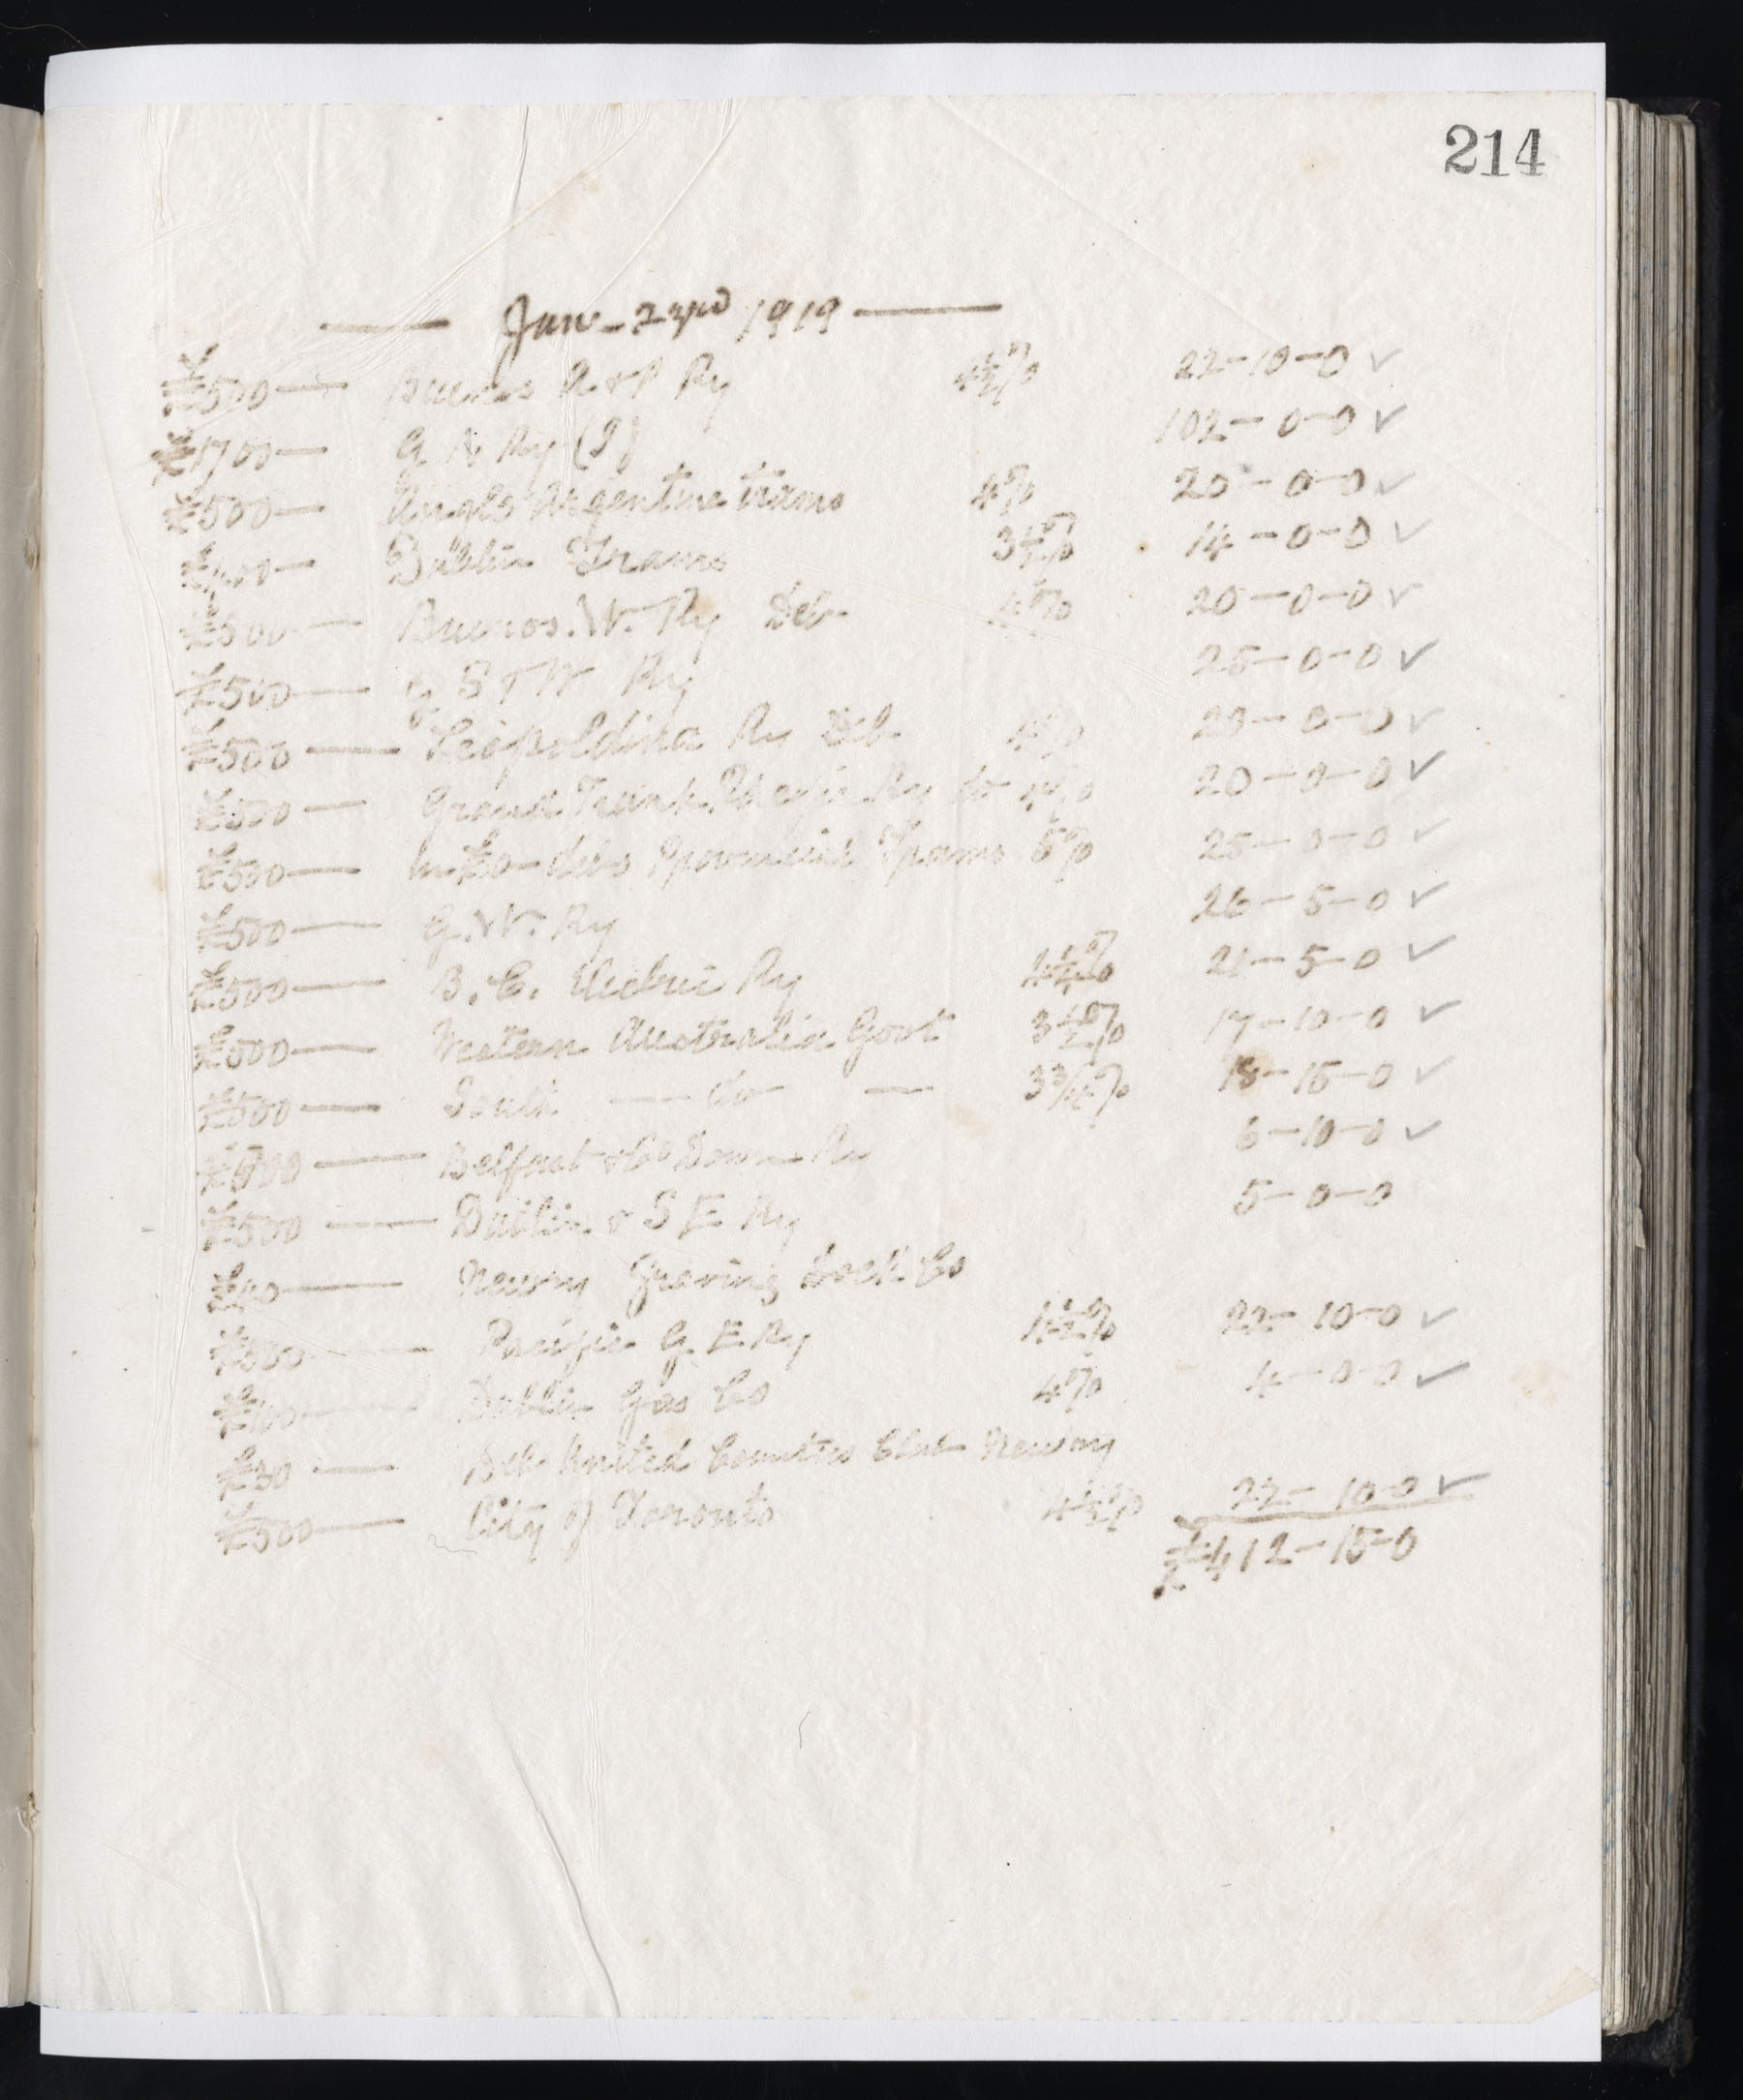 214
— Jan - 23rd 1919 —
£500 — Buenos A & P Ry 4½% 22-10-0 ✓
£1700 — G N Ry (I) 102-0-0 ✓
£500 — Anglo Argentine Trams 4% 20-0-0 ✓
£400 — Dublin Trams 3½% 14-0-0 ✓
£500 — Buenos. W. Ry Deb 4% 20-0-0 ✓
£500 — G S & W Ry 25-0-0 ✓
£500 — Leopoldina Ry Deb 4% 20-0-0 ✓
£500 — Grand Trunk Pacific Ry do 4% 20-0-0 ✓
£500 — debs Provincial Trams 5% 25-0-0 ✓
£500 — G. W. Ry 26-5-0 ✓
£500 — B. C. Electric Ry 4¼% 21-5-0 ✓
£500 — Western Australia Govt 3½% 17-10-0 ✓
£500 — South — do — 3¾% 18-15-0 ✓
£500 — Belfast & Co Down Ry 6-10-0 ✓
£500 — Dublin & S E Ry 5-0-0
£40 — Newry Graving Dock Co
£500 — Pacific G. E Ry 4½% 22-10-0 ✓
£100 — Dublin Gas Co 4% 4-0-0 ✓
£30 — Deb United Counties Club Newry
£500 — City of Toronto 4½% 22-10-0 ✓
£412-15-0